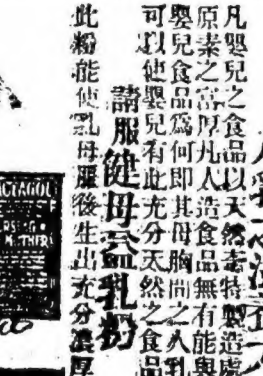 人乳
凡嬰兒之食品以天然特製造處
原素之富厚凡人造食品無有能與
嬰兒食品爲何即其母胸間之人乳
可以使嬰兒有此充分天然之食品
請服健母益乳粉
此粉能使乳母服後生出充分濃厚
CTAGOL
MOTHER